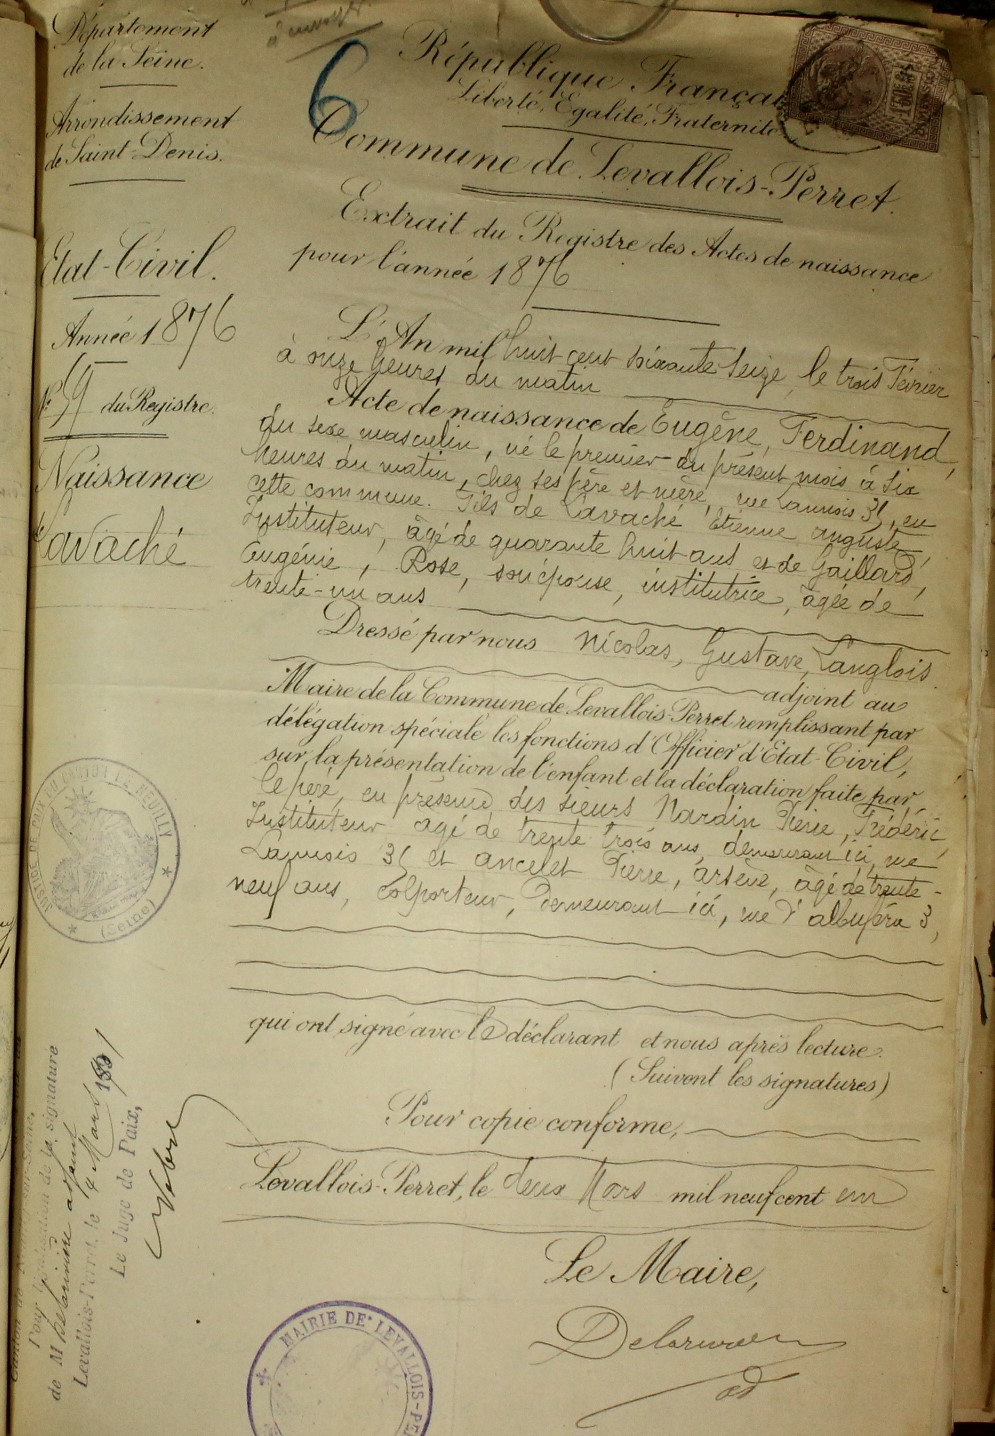 Département
de la Seine.
Arrondissement
de Saint-Denis.
Etat-Civil.
Année 1876
N° 59 du Registre.
Naissance
de
Cavaché
6
République Française
Liberté, Egalité, Fraternité
Commune de Levallois-Perret.
Extrait du Registre des Actes de naissance
pour l'année 1876
L'An mil huit cent soixante seize, le trois Février
à onze heures du matin
Acte de naissance de Eugène, Ferdinand,
du sexe masculin, né le premier du présent mois à six
heures du matin, chez ses père et mère, rue Lannois 31, en
cette commune. Fils de Cavaché Etienne auguste,
Instituteur, âgé de quarante huit ans et de Gaillard,
Eugénie, Rose, son épouse, institutrice, âgée de
trente-un ans
Dressé par nous Nicolas, Gustave, Langlois
adjoint au
Maire de la Commune de Levallois-Perret remplissant par
délégation spéciale les fonctions d'Officier d'Etat-Civil,
sur la présentation de l'enfant et la déclaration faite par
le père, en présence des sieurs Nardin Pierre, Frédéric,
Instituteur, âgé de trente trois ans, demeurant ici, rue
Lannois 31 et ancelet Pierre, arsène, âgé de trente-
neuf ans, Colporteur, Demeurant ici, rue d'albuféra 3,
qui ont signé avec le déclarant et nous après lecture.
(Suivent les signatures)
Pour copie conforme,
Levallois-Perret, le deux Mars mil neuf cent un
Le Maire,
Delarue
ad
JUSTICE DE PAIX DU CANTON DE NEUILLY
(Seine)
Pour légalisation de la signature
de M Delarue adjoint
Levallois-Perret, le 4 Mars 1901
Le Juge de Paix,
MAIRIE DE LEVALLOIS-PE